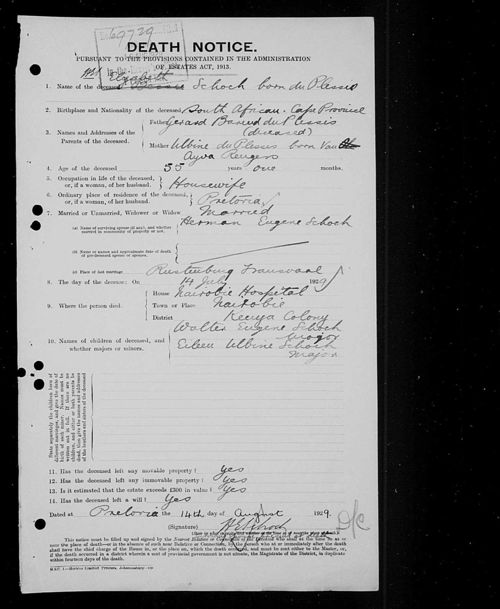 69729
DEATH NOTICE.
PURSUANT TO THE PROVISIONS CONTAINED IN THE ADMINISTRATION
OF ESTATES ACT, 1913.
Elizabeth
1. Name of the deceased Schoch born du Plessis
2. Birthplace and Nationality of the deceased South African. Cape Province
3. Names and Addresses of the Parents of the deceased.
Father Gerard Barend du Plessis
(deceased)
Mother Ulbine du Plessis born Van
4. Age of the deceased 55 years one months.
5. Occupation in life of the deceased, or, if a woman, of her husband. Housewife
6. Ordinary place of residence of the deceased, or, if a woman, of her husband. Pretoria
7. Married or Unmarried, Widower or Widow Married
(a) Name of surviving spouse (if any), and whether married in community of property or not. Herman Eugene Schoch
(b) Name or names and approximate date of death of pre-deceased spouse or spouses.
(c) Place of last marriage Rustenburg Transvaal
8. The day of the decease: On 14 July 1929
9. Where the person died.
House Nairobie Hospital
Town or Place Nairobie
District Kenya Colony
10. Names of children of deceased, and whether majors or minors.
Walter Eugene Schoch
Major
Eileen Ulbine Schoch
Major
State separately the children born of different marriages, and give the date of birth of each minor. Names must be written out in full. If there are no children, and either or both parents be dead, then give the names and addresses of the brothers and sisters of the deceased
11. Has the deceased left any movable property? Yes
12. Has the deceased left any immovable property? Yes
13. Is it estimated that the estate exceeds £300 in value? Yes
14. Has the deceased left a will? Yes
Dated at Pretoria the 14th day of August 1929.
(Signature)
This notice must be filled up and signed by the Nearest Relative or Connection of the deceased who shall at the time be at or
near the place of death—or in the absence of such near Relative or Connection, by the person who at or immediately after the death
shall have the chief charge of the House in, or the place on, which the death occurred, and must be sent either to the Master, or,
if the death occurred in a district wherein a seat of provincial government is not situate, the Magistrate of the District, in duplicate
within fourteen days of the death.